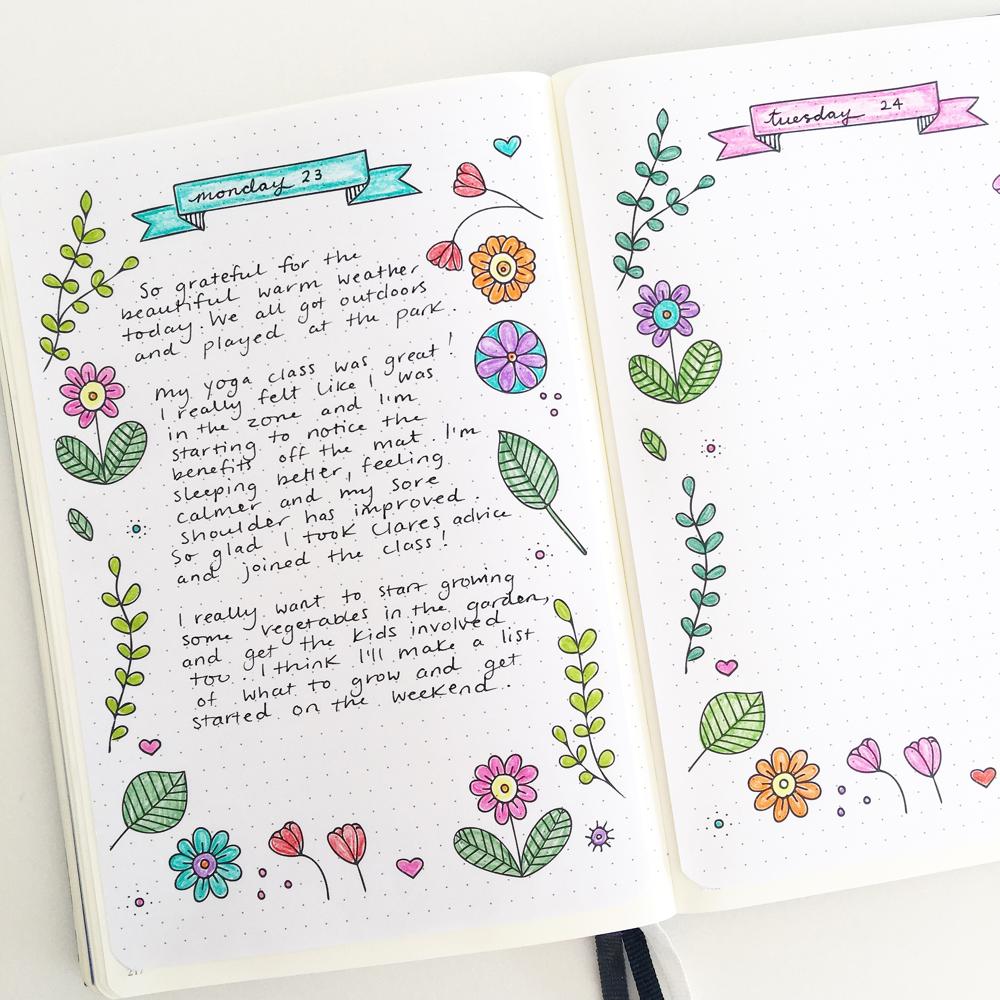 monday 23
So grateful for the
beautiful warm weather
today. We all got outdoors
and played at the park.
my yoga class was great!
I really felt like I was
in the zone and I'm
starting to notice the
benefits off the mat. I'm
sleeping better, feeling
calmer and my sore
shoulder has improved.
So glad I took Clares advice
and joined the class!
I really want to start growing
some vegetables in the garden,
and get the kids involved
too. I think I'll make a list
of what to grow and get
started on the weekend.
tuesday 24